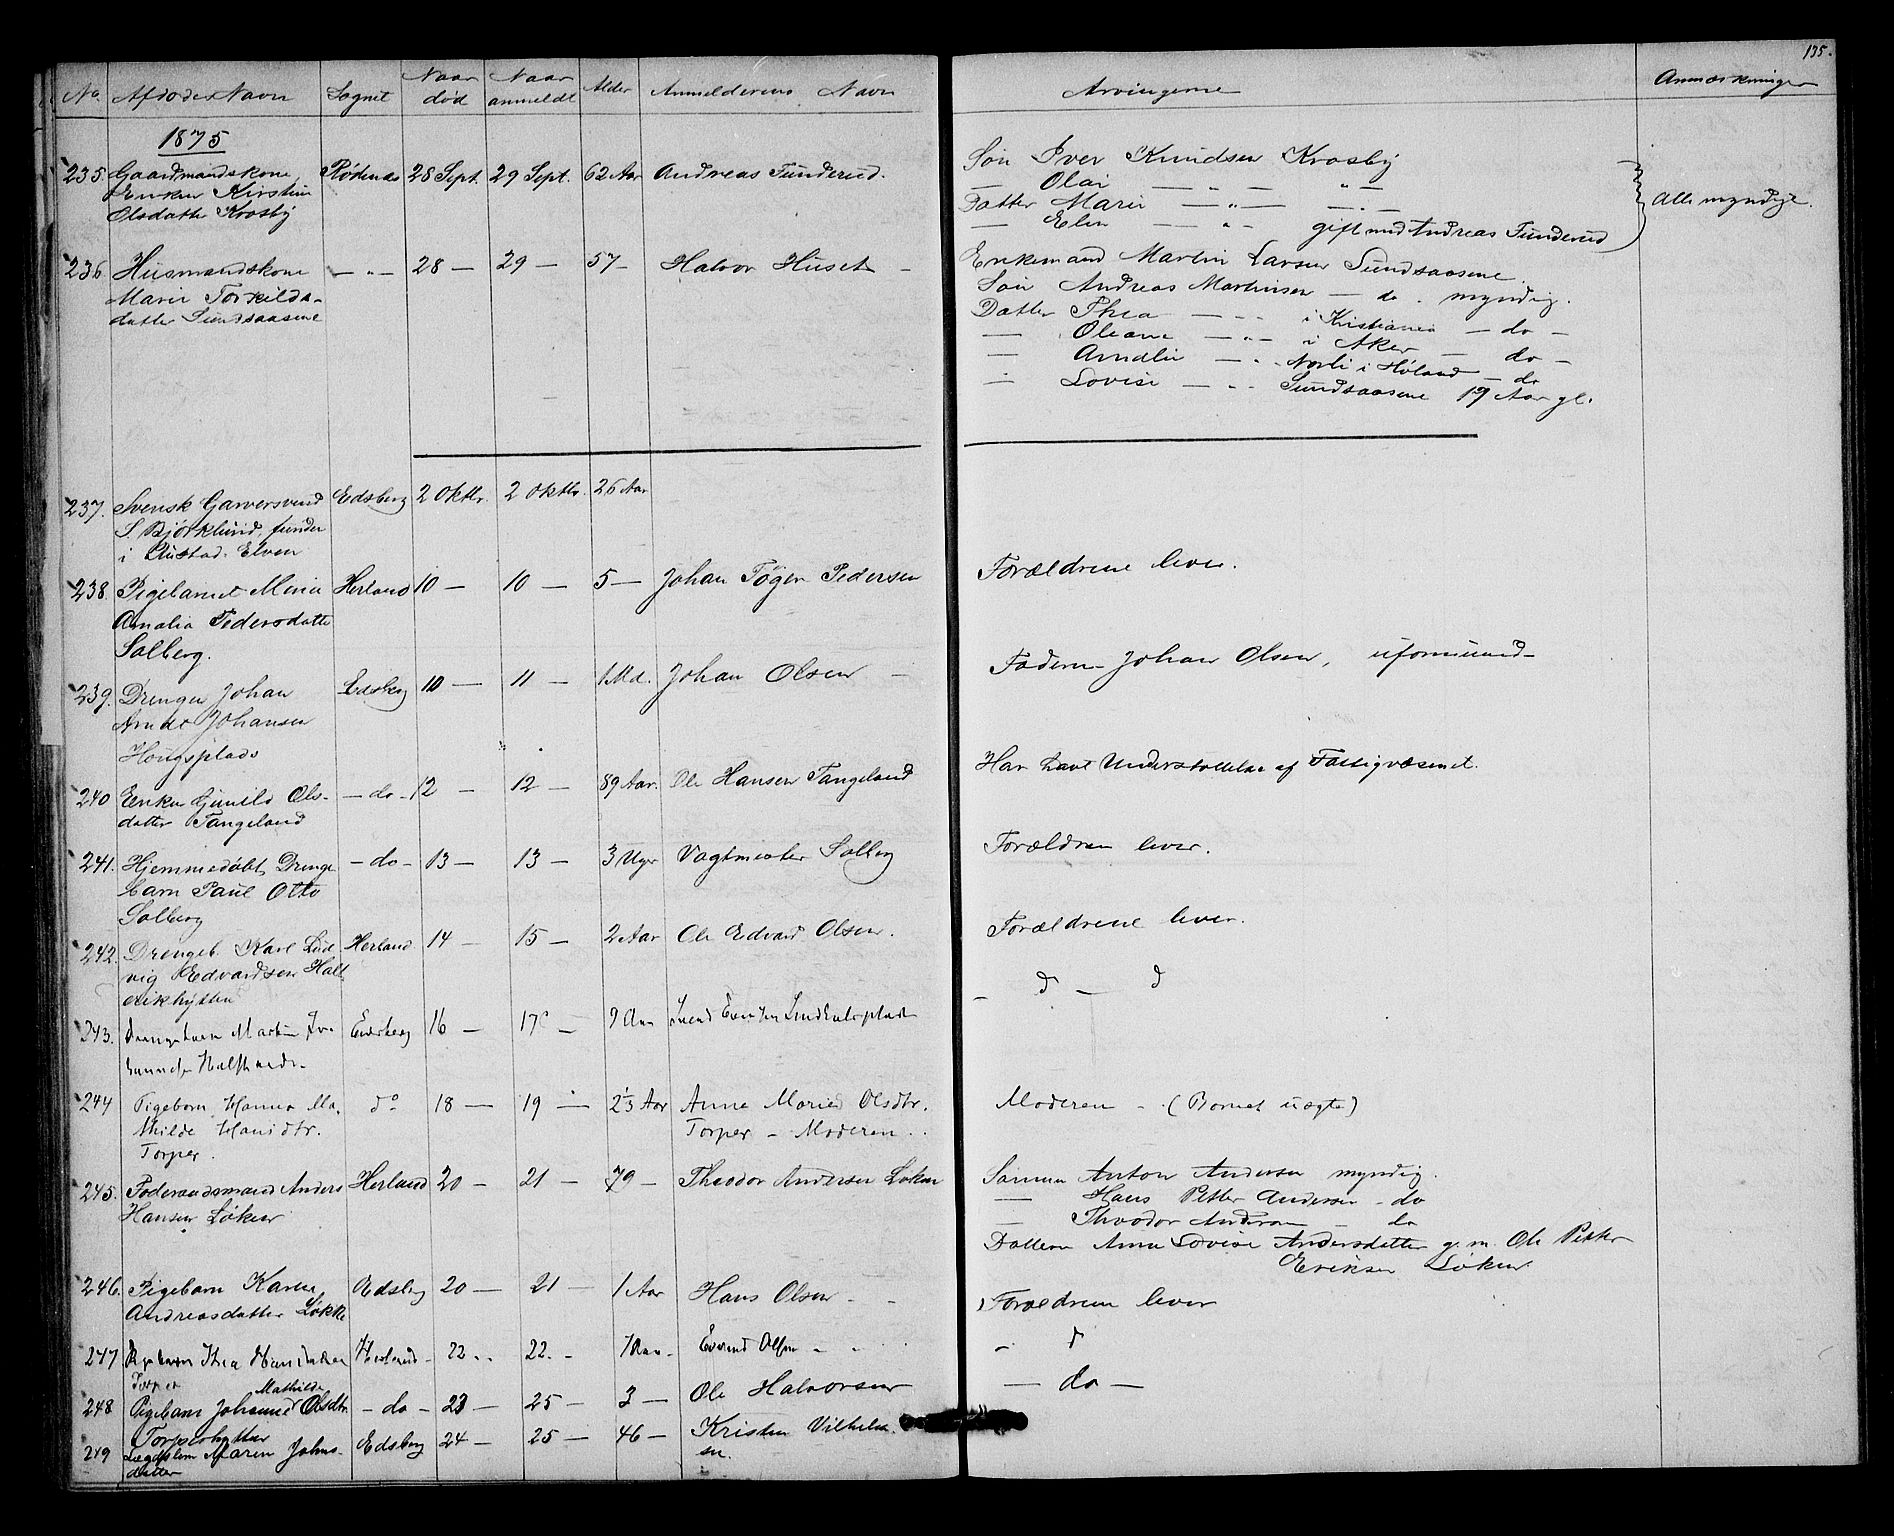 135.
No. Afdødes Navn Sognet Naar død Naar anmeldt Alder Anmelderens Navn Arvingerne Anmærkninger
1875
235. Gaardmandskone, Rødenæs 28 Sept. 29 Sept. 62 Aar Andreas Funderud.
Enken Kirstine
Olsdatter Krosby
Søn Iver Knudsen Krosby
— Olai — „ — „ —
Datter Marie — „ — — „ —
— Elin — „ - gift med Andreas Funderud
Alle myndige.
236. Husmandskone — „ — 28 — 29 — 57 — Halvor Huset —
Marie Torkilds-
datter Sundsaasene
Enkemand Martin Larsen Sundsaasene
Søn Andreas Martinsen — do. myndig.
Datter Thea — - - i Kristiania — do —
— Oleane — „ - i Aker — do —
— Amalie — - Norli i Høland — do
— Lovise — - - Sundsaasene 19 Aar gl.
237. Svensk Garversvend Edsberg 2 Oktbr. 2 Oktbr. 26 Aar
S. Björklund, funden
i Elven
238. Pigebarnet Mina Herland 10 — 10 — 5 — Johan Pedersen
Amalia Pedersdatter
Solberg.
Forældrene lever.
239. Drengen Johan Edsberg 10 — 11 — 1 Md. Johan Olsen —
Johansen
Hougsplads
Faderen Johan Olsen,
240 Enken Gunild Ols- — do - 12 — 12 — 89 Aar. Ole Hansen Tangeland
datter Tangeland
Har havt Understøttelse af Fattigvæsenet.
241. Hjemmedøbt Drenge — do - 13 — 13 — 3 Uger Vagtmester Solberg
barn Paul Otto
Solberg
Forældrene lever.
242. Drengeb. Karl Lud Herland 14 — 15 — 2 Aar Ole Edvard Olsen.
vig Edvardsen
Forældrene lever.
243. Drengebarn Martin Jo- Eidsberg 16 — 17 — 9 Aar
hannes
- d — d
244 Pigebarn Hanna Ma- do 18 — 19 — 2⅓ Aar Anne Marie Olsdtr.
thilde Hansdtr. Torper - Moderen.
Torper.
Moderen - (Barnet uægte)
245. Føderaadsmand Anders Herland 20 — 21 — 79 — Theodor Andersen Løken
Hansen Løken
Sønnen Anton Andersen myndig.
— Hans Petter Andersen - do
— Theodor Andersen — do
Datteren Anne Lovise Andersdatter g. m. Ole Petter
Eriksen Løken
246. Pigebarn Karen Edsberg 20 — 21 — 1 Aar Hans Olsen - -
Andreasdatter Løkke
Forældrene lever
247 Pigebarn Thea Herland - 22 - 22 - Olsen - -
Torper
- d
248 Pigebarn Johanne Mathilde Olsdtr. — do — 23 — 25 — 3 — Ole Halvorsen
Torperhytten
— do —
249 Lægdslem Maren Johns- Edsberg 24 — 25 — 46 — Kristen Vilhelm-
datter sen.